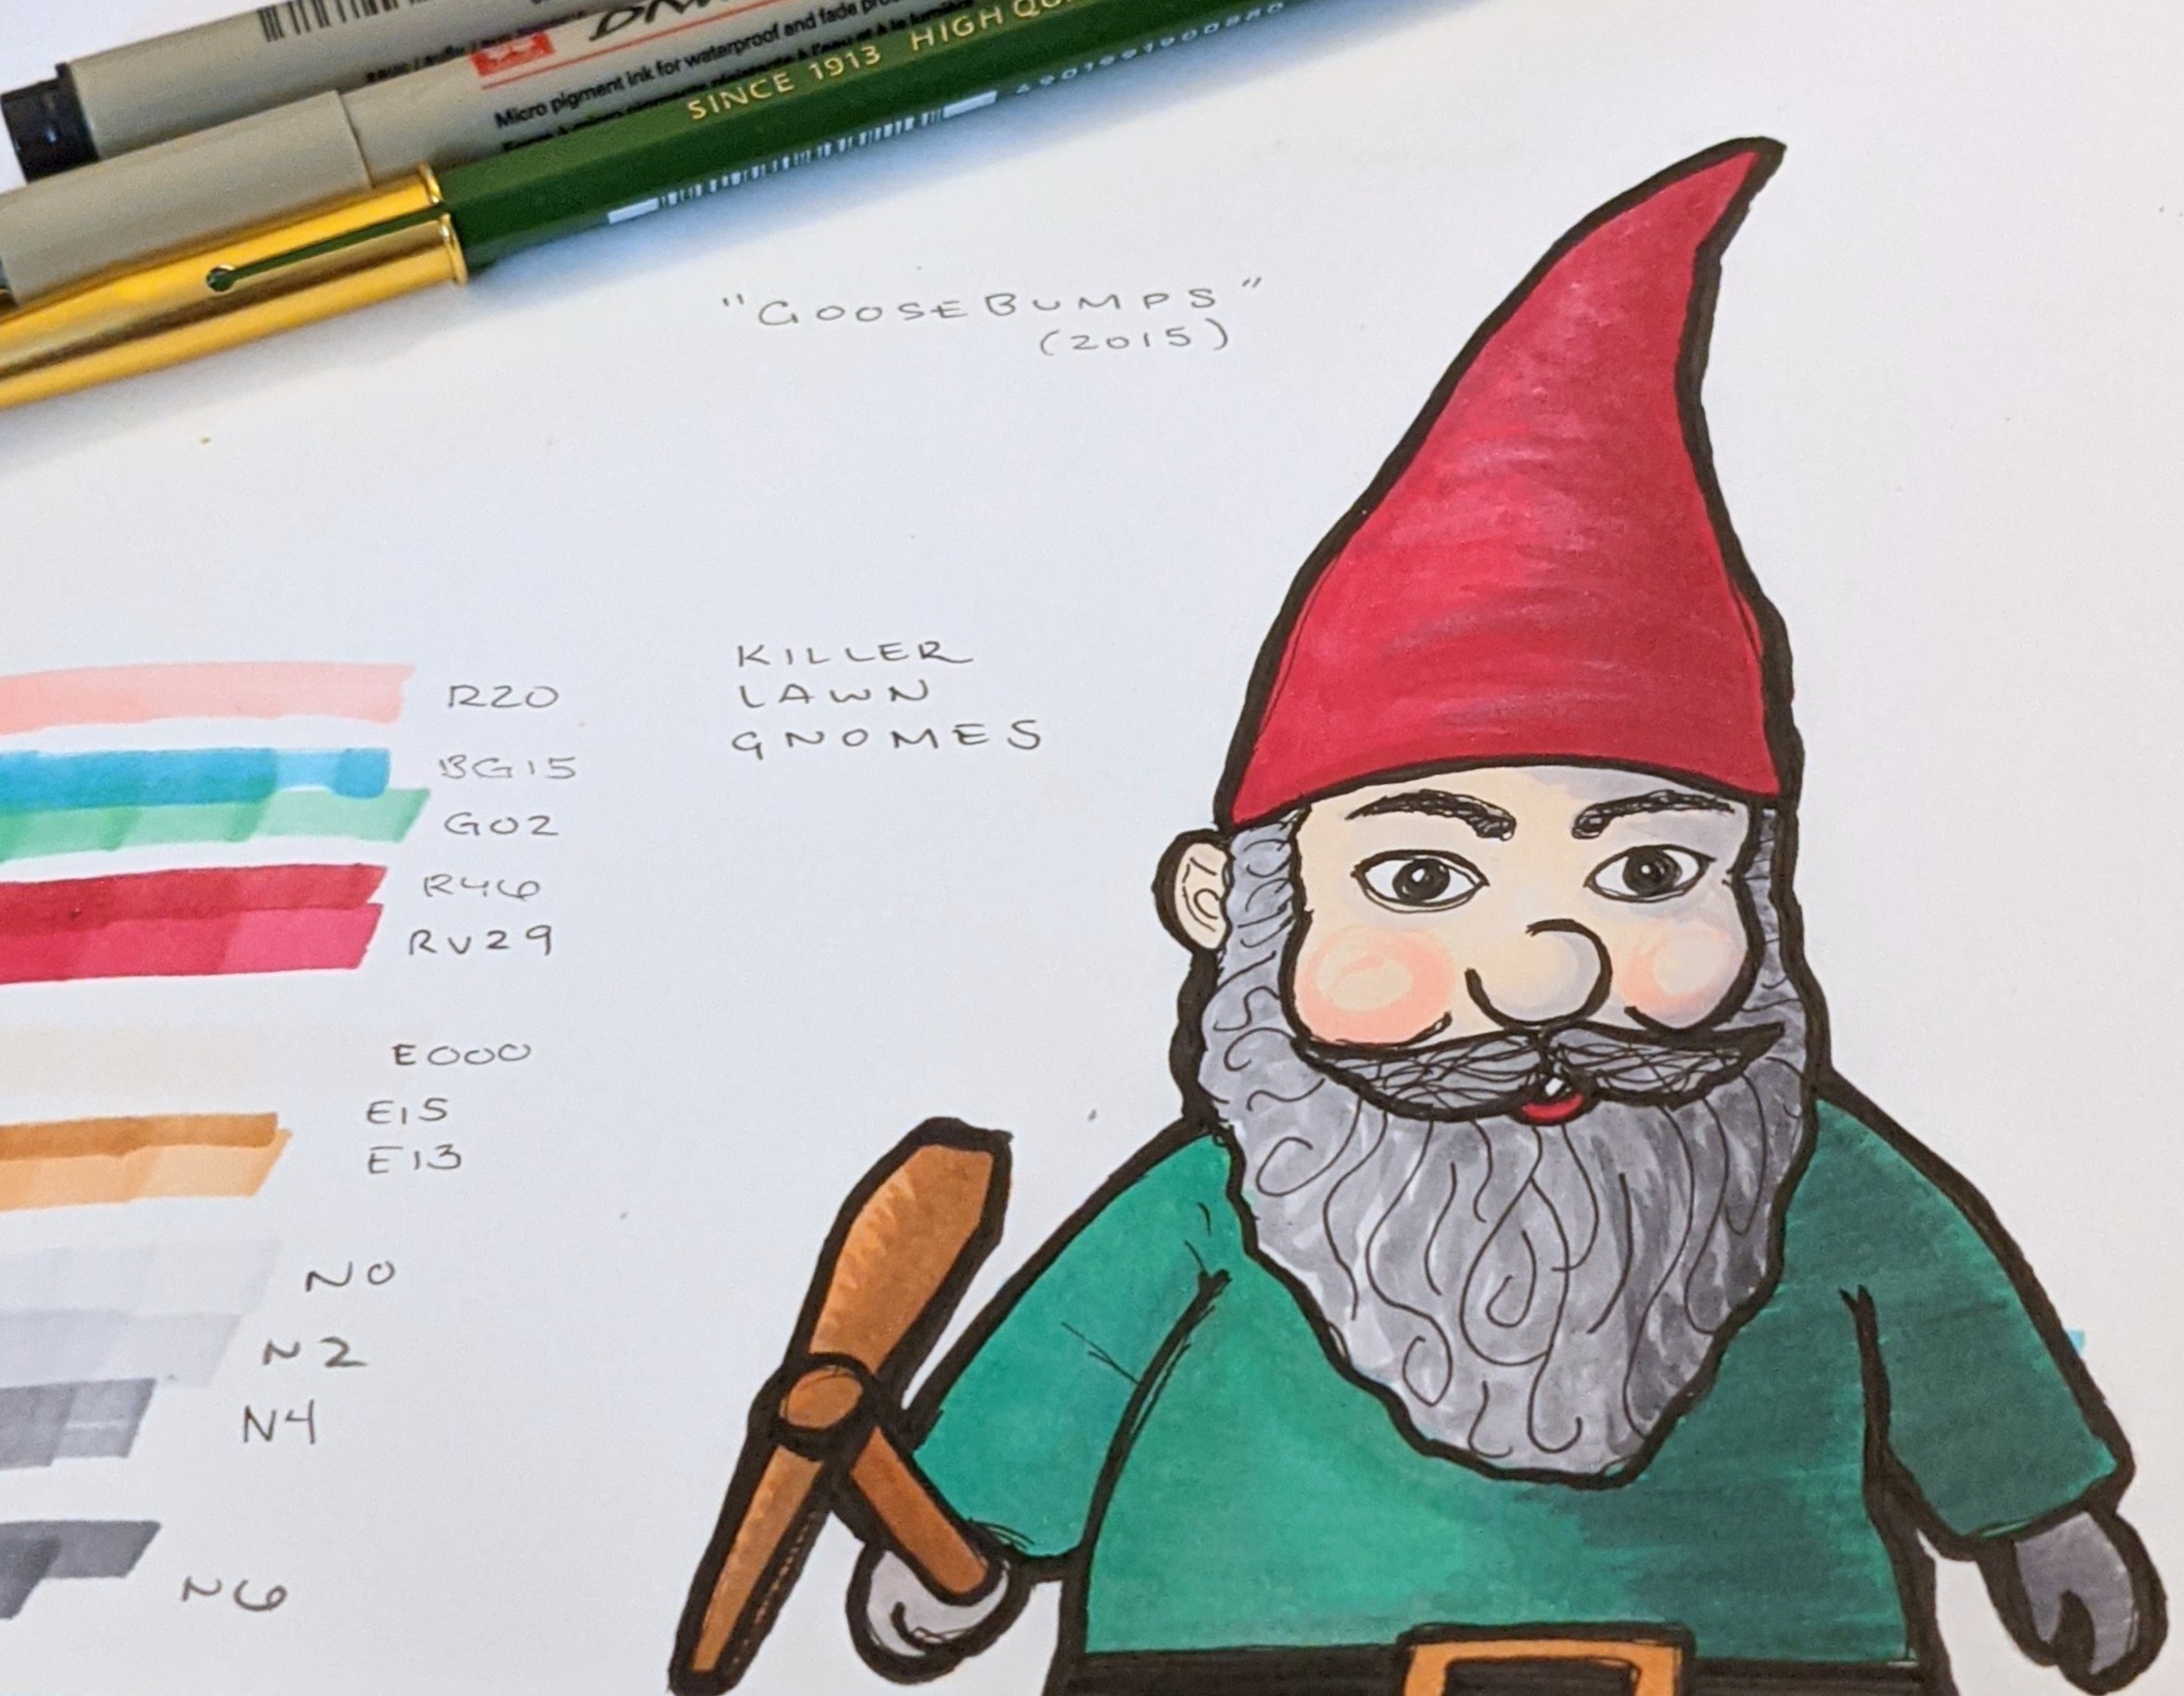 Micro pigment ink for waterproof and fade
SINCE 1913 HIGH
"GOOSEBUMPS"
(2015)
KILLER
LAWN
GNOMES
R20
BG15
G02
R46
RV29
E000
E15
E13
N0
N2
N4
N6